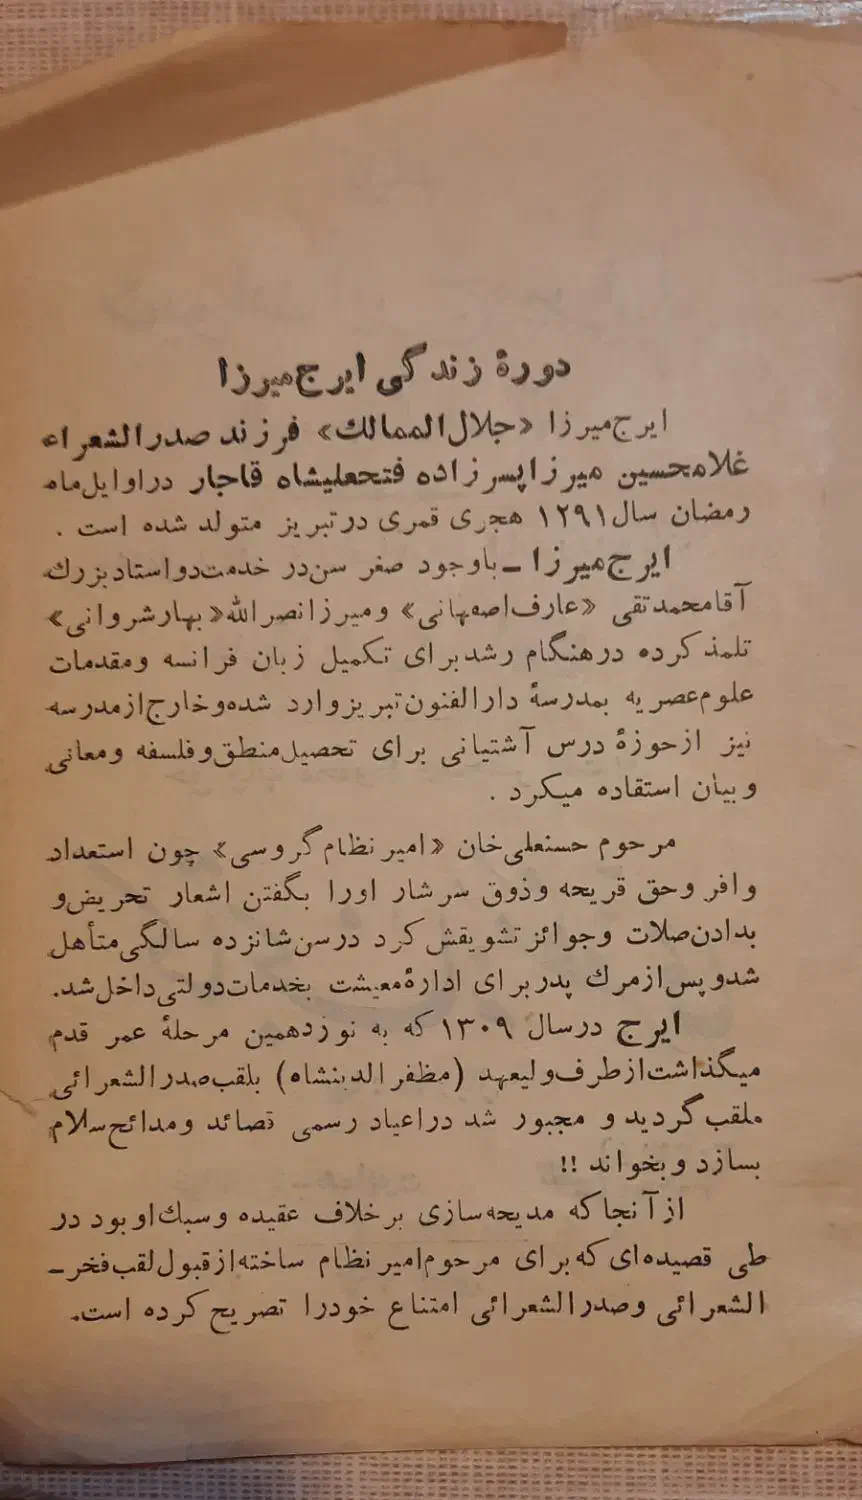 دورهٔ زندگی ایرج‌میرزا
ایرج‌میرزا «جلال‌الممالك» فرزند صدرالشعراء
غلامحسین میرزا پسرزاده فتحعلیشاه قاجار دراوایل‌ماه
رمضان سال۱۲۹۱ هجری قمری درتبریز متولد شده است .
ایرج‌میرزا ـ باوجود صغر سن‌در خدمت‌دواستادبزرك
آقامحمدتقی «عارف‌اصفهانی» ومیرزانصرالله«بهارشروانی»
تلمذکرده درهنگام رشدبرای تکمیل زبان فرانسه ومقدمات
علوم‌عصریه بمدرسهٔ دارالفنون‌تبریزوارد شده‌وخارج‌ازمدرسه
نیز ازحوزهٔ درس آشتیانی برای تحصیل‌منطق‌وفلسفه ومعانی
وبیان استقاده میکرد .
مرحوم حسنعلی‌خان «امیرنظام‌گروسی» چون استعداد
وافر وحق قریحه وذوق سرشار اورا بگفتن اشعار تحریض‌و
بدادن‌صلات وجوائزتشویقش‌کرد درسن‌شانزده سالگی‌متأهل
شدوپس‌ازمرك پدربرای ادارهٔ‌معیشت بخدمات‌دولتی‌داخل‌شد.
ایرج درسال ۱۳۰۹که به نوزدهمین مرحلهٔ عمر قدم
میگذاشت‌ازطرف‌ولیعهد (مظفرالدینشاه) بلقب‌صدرالشعرائی
ملقب‌گردید و مجبور شد دراعیاد رسمی قصائد ومدائح‌سلام
بسازد وبخواند !!
ازآنجاکه مدیحه‌سازی برخلاف عقیده وسبك‌اوبود در
طی قصیده‌ای‌که‌برای مرحوم‌امیرنظام ساخته‌ازقبول‌لقب‌فخر ـ
الشعرائی وصدرالشعرائی امتناع خودرا تصریح‌کرده است.